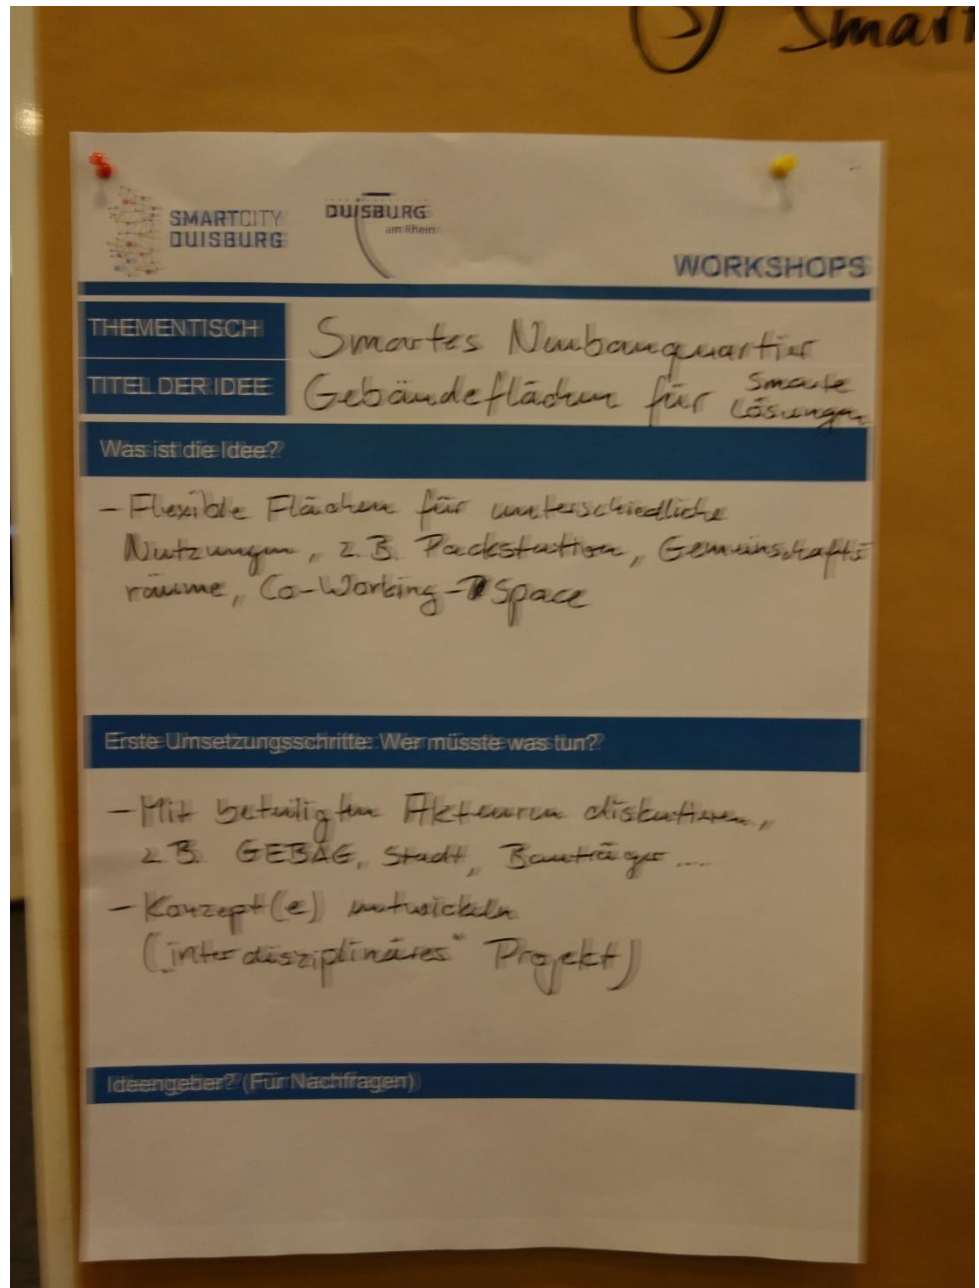 Smart
SMARTCITY
DUISBURG
DUISBURG
am Rhein
WORKSHOPS
THEMENTISCH
Smartes Neubauquartier
TITEL DER IDEE
Gebäudeflächen für smarte
Lösungen
Was ist die Idee?
- Flexible Flächen für unterschiedliche
Nutzungen, z.B. Packstation, Gemeinschafts
räume, Co-Working-Space
Erste Umsetzungsschritte: Wer müsste was tun?
- Mit beteiligten Akteuren diskutieren,
z.B. GEBAG, Stadt, Bauträger ....
- Konzept(e) entwickeln
("interdisziplinäres" Projekt)
Ideengeber? (Für Nachfragen)